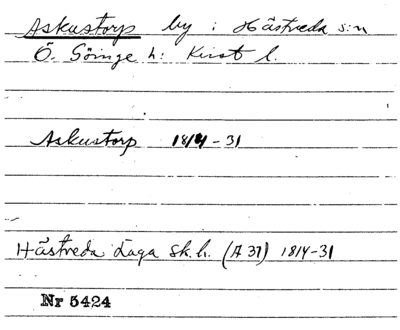 Askustorp by i Hästveda s:n
Ö. Göinge h: Krist l.
Askustorp 1814-31
Hästveda Laga sk.h. (A 37) 1814-31
Nr 5424